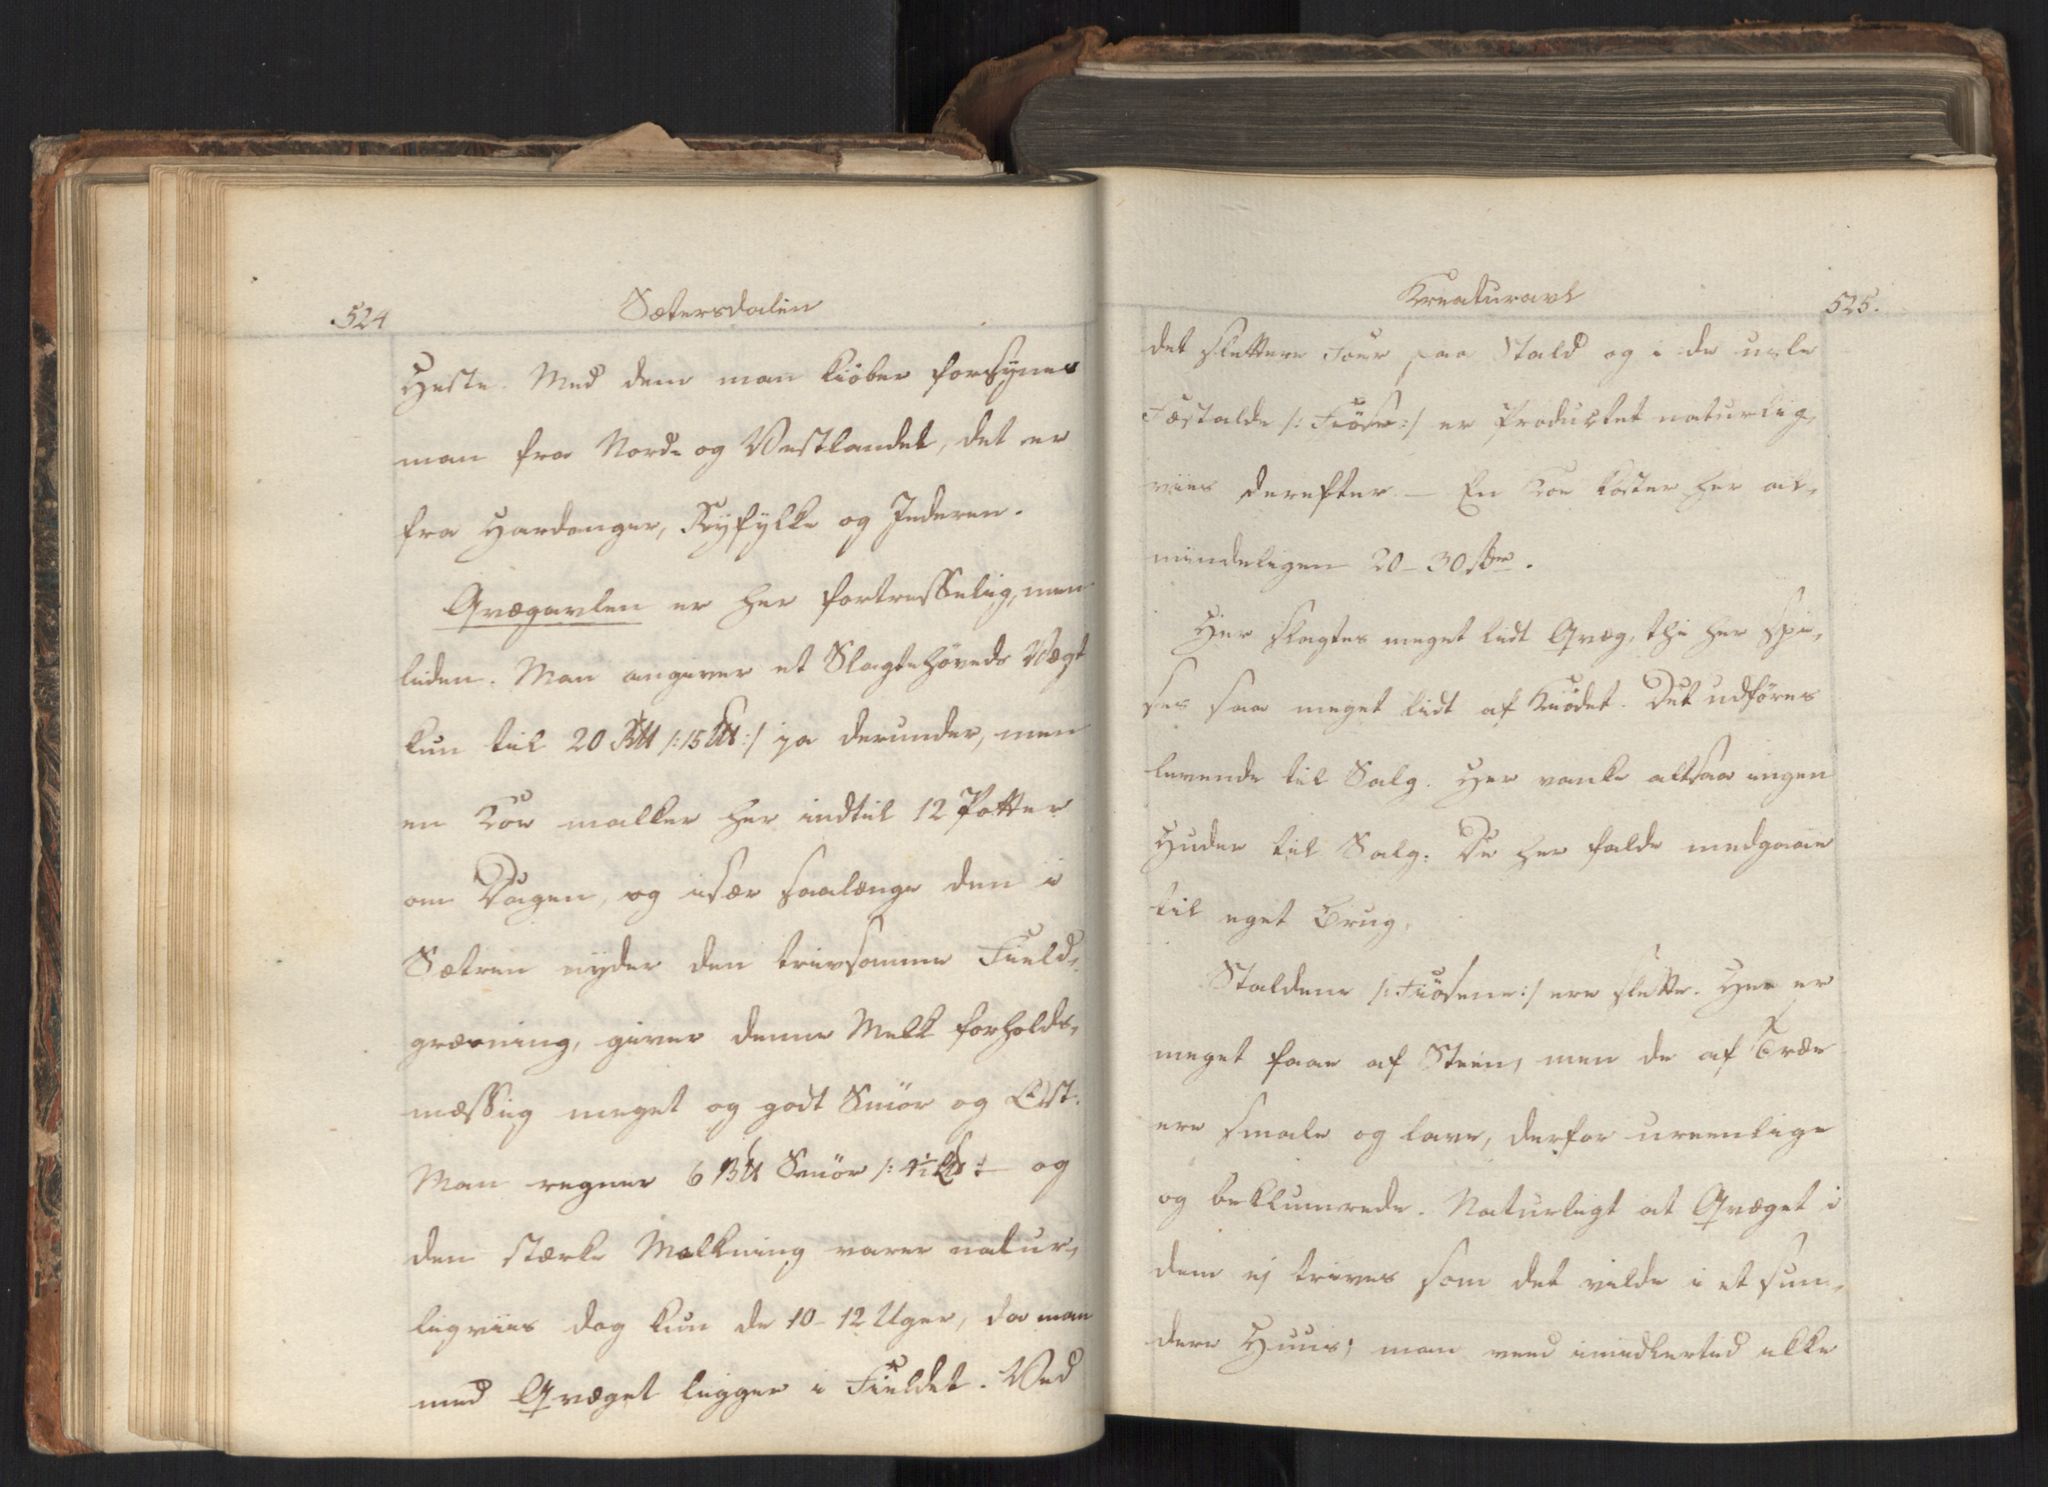 524
Sætersdalen
Heste. Med dem man kiöber forsynes
man fra Nord- og Vestlandet, det er
fra Hardanger, Ryfylke og Jederen.
Qvægavlen er her fortreffelig, men
liden. Man angiver et Slagtehöveds Vægt
kun til 20 /: 15 :/ ja derunder, men
en Koe malker her indtil 12 Potter
om Dagen, og især saalænge den i
Sætren nyder den trivsomme Field-
græsning, giver denne Melk forholds-
mæssig meget og godt Smör og Ost.
Man regner 6 Smör /: 4½ :/ og
den stærke Malkning varer natur-
ligviis dog kun de 10-12 Uger, da man
med Qvæget ligger i Fieldet. Ved
Kreaturavl
525.
det slettere Foer paa Stald og i de usle
Fæstalde /: Fiöse :/ er Productet naturlig-
viis derefter. — En Koe koster her al-
mindeligen 20-30
Her slagtes meget lidt Qvæg, thi her spi-
ses saa meget lidt af Kiödet. Det udföres
levende til Salg. Her vanke altsaa ingen
Huder til Salg. De her falde medgaae
til eget Brug.
Staldene /: Fiösene :/ ere slette. Her er
meget faae af Steen, men de af Træe
ere smale og lave, derfor ureenlige
og beklumrede. Naturligt at Qvæget i
dem ej trives som det vilde i et sun-
dere Huus; man veed imidlertid ikke